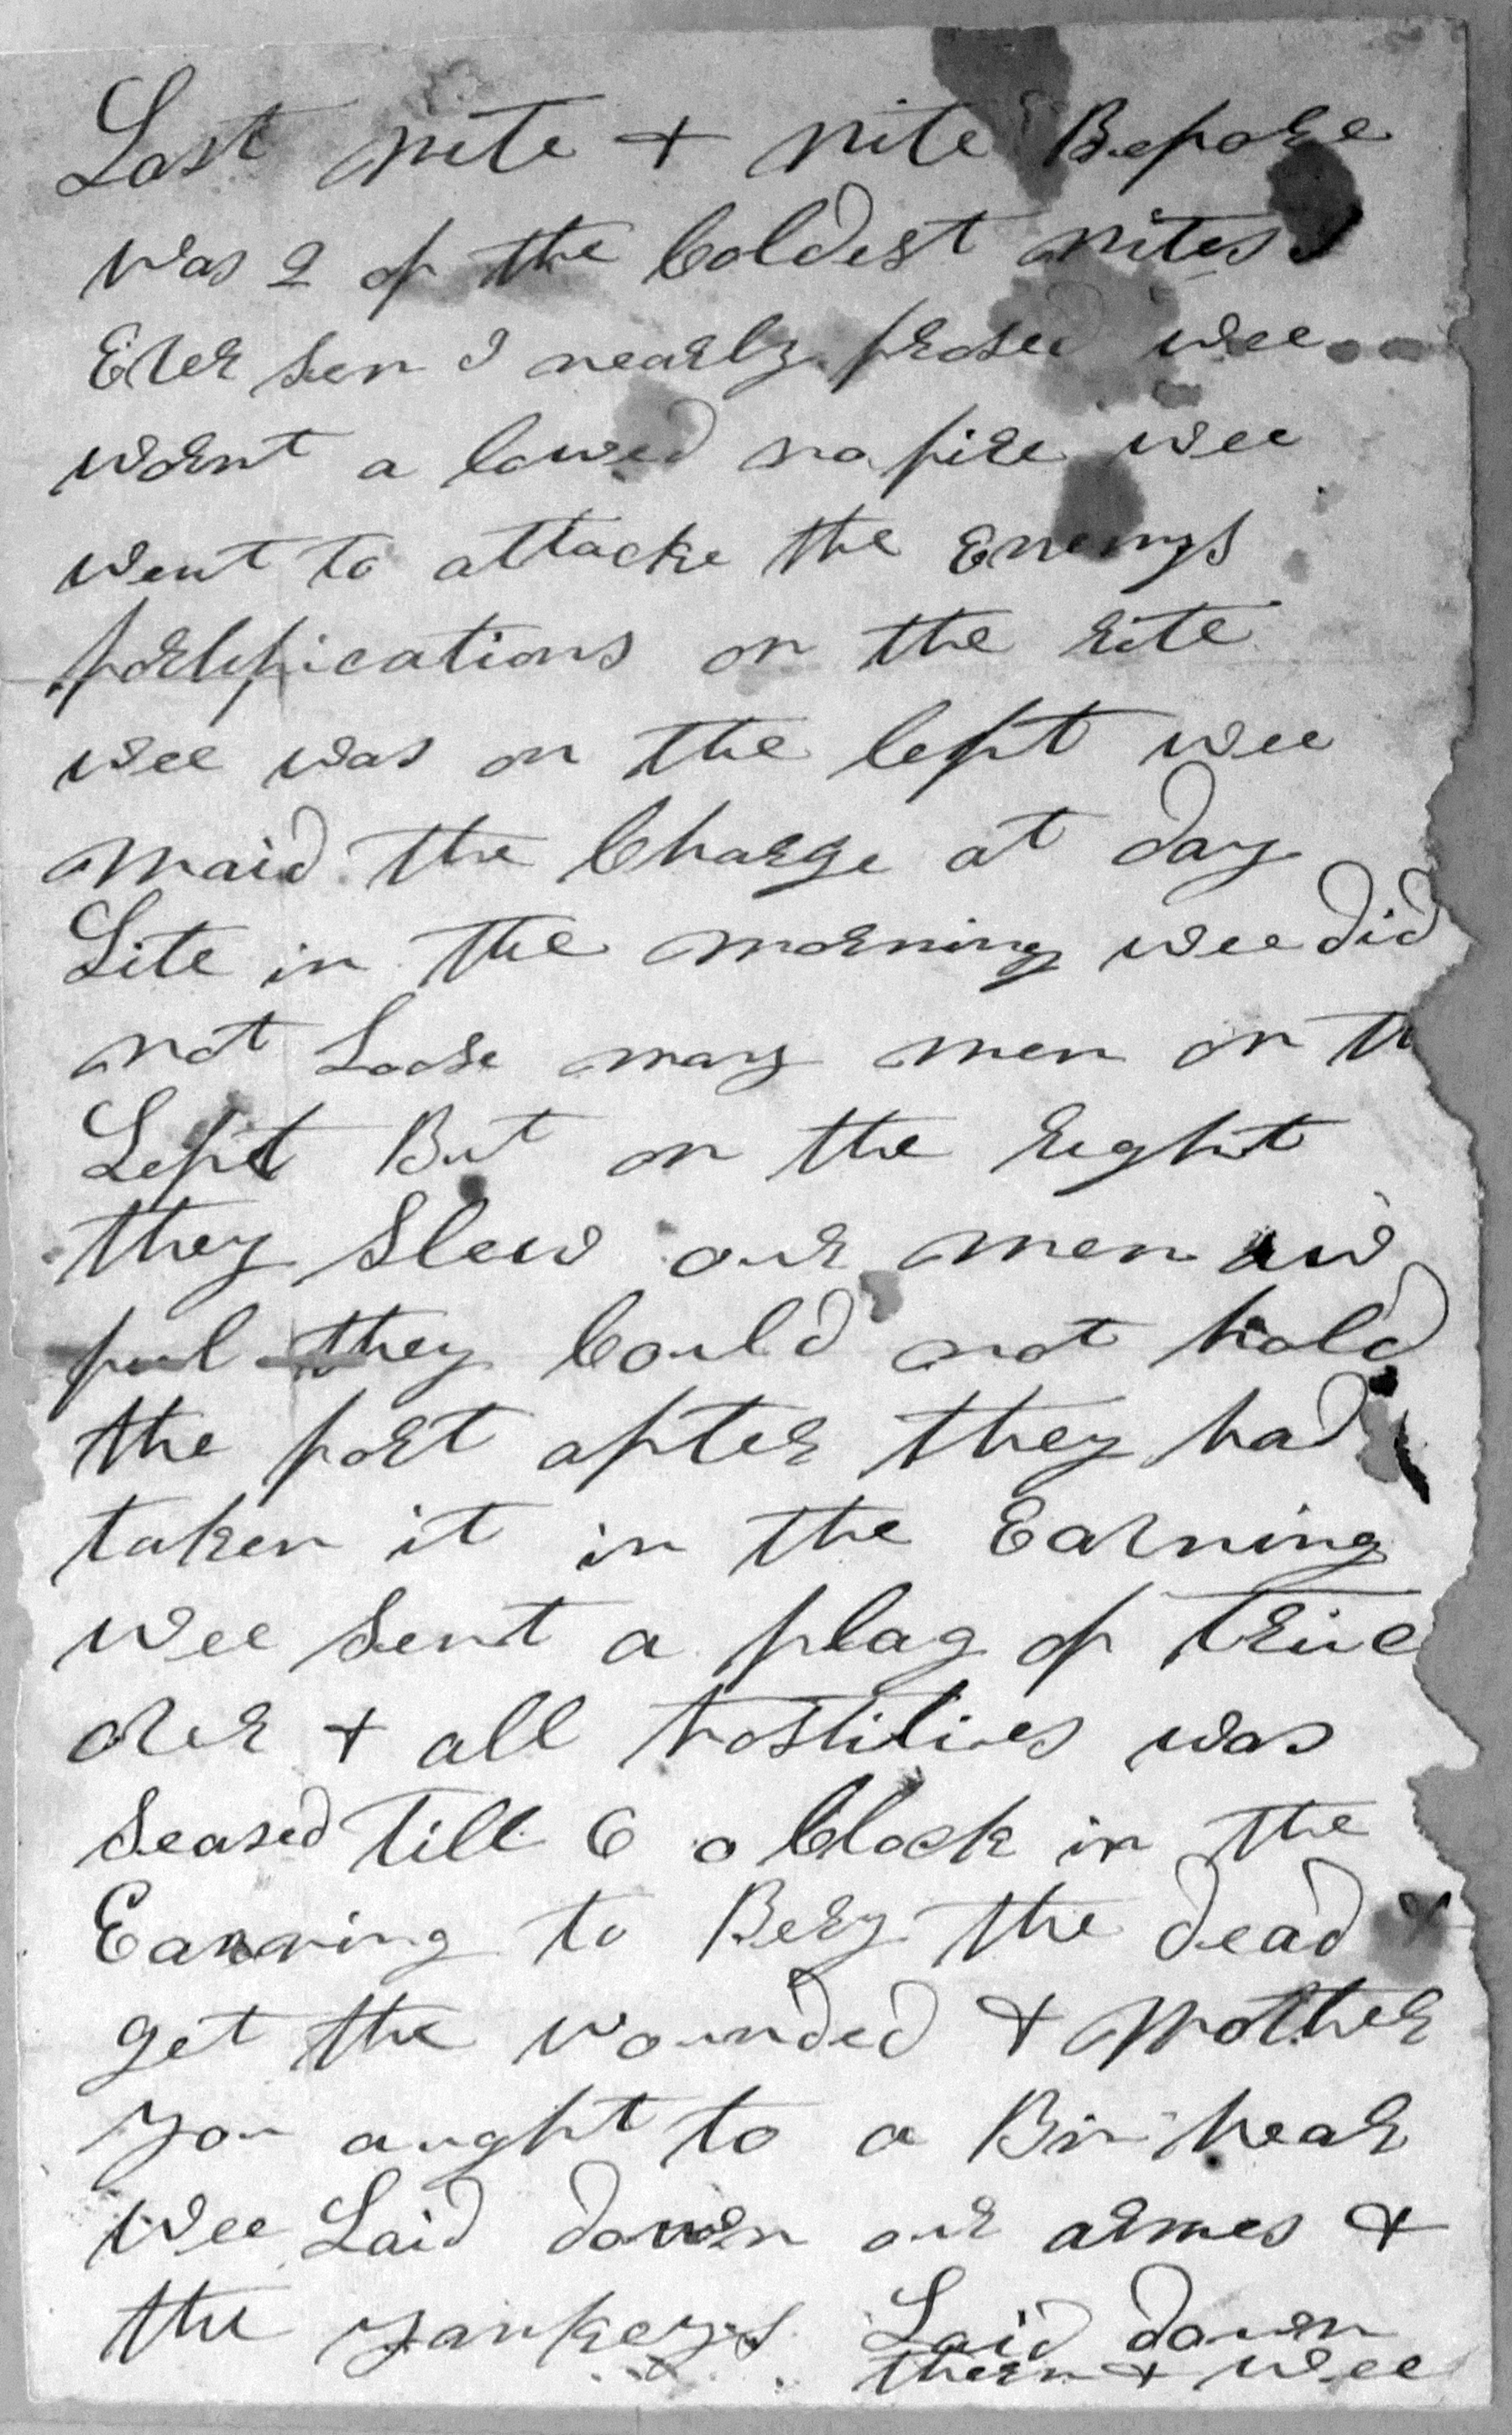 Last nite + nite Before
was 2 of the Coldest nites I
Ever Sen I nearly frosed wee
wornt a lowed no fire wee
went to attacke the Enemys
fortifications on the rite
wee was on the left wee
maid the Charge at day
Lite in the morning wee did
not Loose many men on th
Left But on the right
they Slew our men aw
ful they Could not hold
the fort after they had
taken it in the Eavning
wee Sent a flag of truc
over + all hostilies was
Seased till 6 o Clock in the
Eavning to Bery the dead +
get the wounded + Mother
you aught to a Bin hear
wee Laid down our armes +
the yankeys Laid down
thern + wee